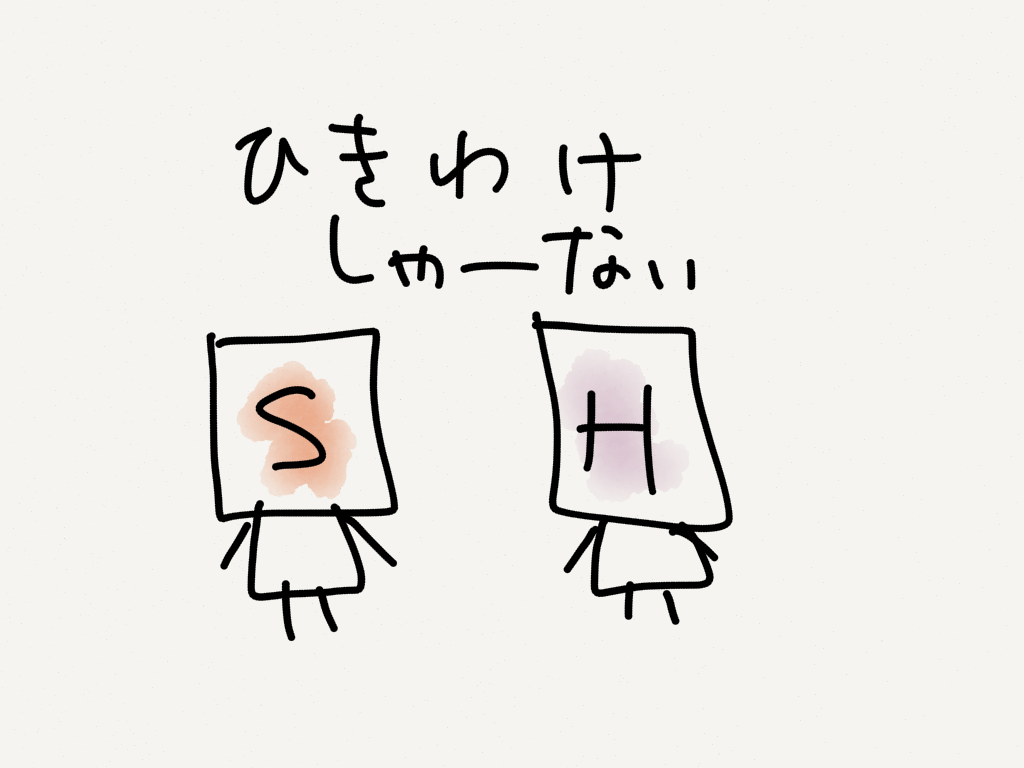 ひきわけ
しゃーない
S H